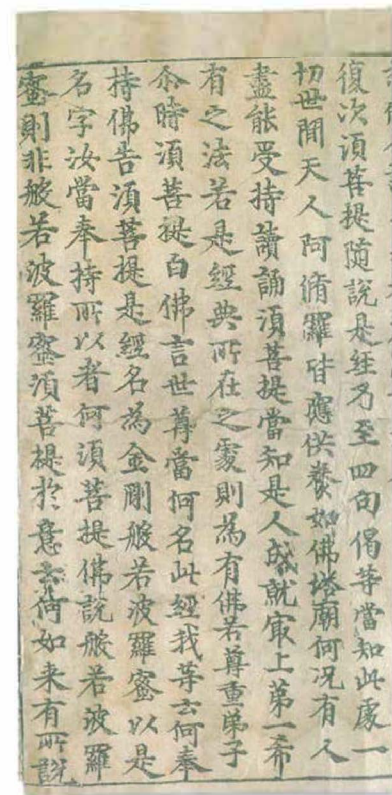 復次須菩提随說是经乃至四句偈等當知此處一
切世間天人阿脩羅皆應供養如佛塔廟何況有人
盡能受持讀誦須菩提當知是人成就㝡上第一希
有之法若是經典所在之處則為有佛若尊重弟子
尒時須菩提白佛言世尊當何名此經我等云何奉
持佛告須菩提是經名為金剛般若波羅蜜以是
名字汝當奉持所以者何須菩提佛說般若波羅
蜜則非般若波羅蜜須菩提於意云何如来有所說